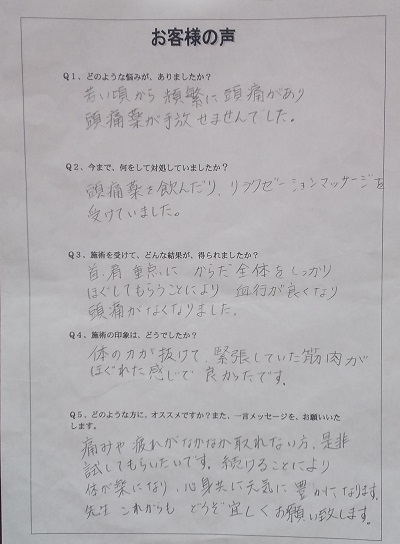 お客様の声
Q1、どのような悩みが、ありましたか?
若い頃から 頻繁に頭痛があり
頭痛薬が手放せませんでした。
Q2、今まで、何をして対処していましたか?
頭痛薬を飲んだり、リラクゼーションマッサージを
受けていました。
Q3、施術を受けて、どんな結果が、得られましたか?
首、肩 重点に からだ全体をしっかり
ほぐしてもらうことにより 血行が良くなり
頭痛がなくなりました。
Q4、施術の印象は、どうでしたか?
体の力が抜けて、緊張していた筋肉が
ほぐれた感じで 良かったです。
Q5、どのような方に、オススメですか?また、一言メッセージを、お願いいた
します。
痛みや疲れがなかなか取れない方、是非
試してもらいたいです。続けることにより
体が楽になり、心身共に元気に豊かになります。
先生 これからも どうぞ宜しくお願い致します。